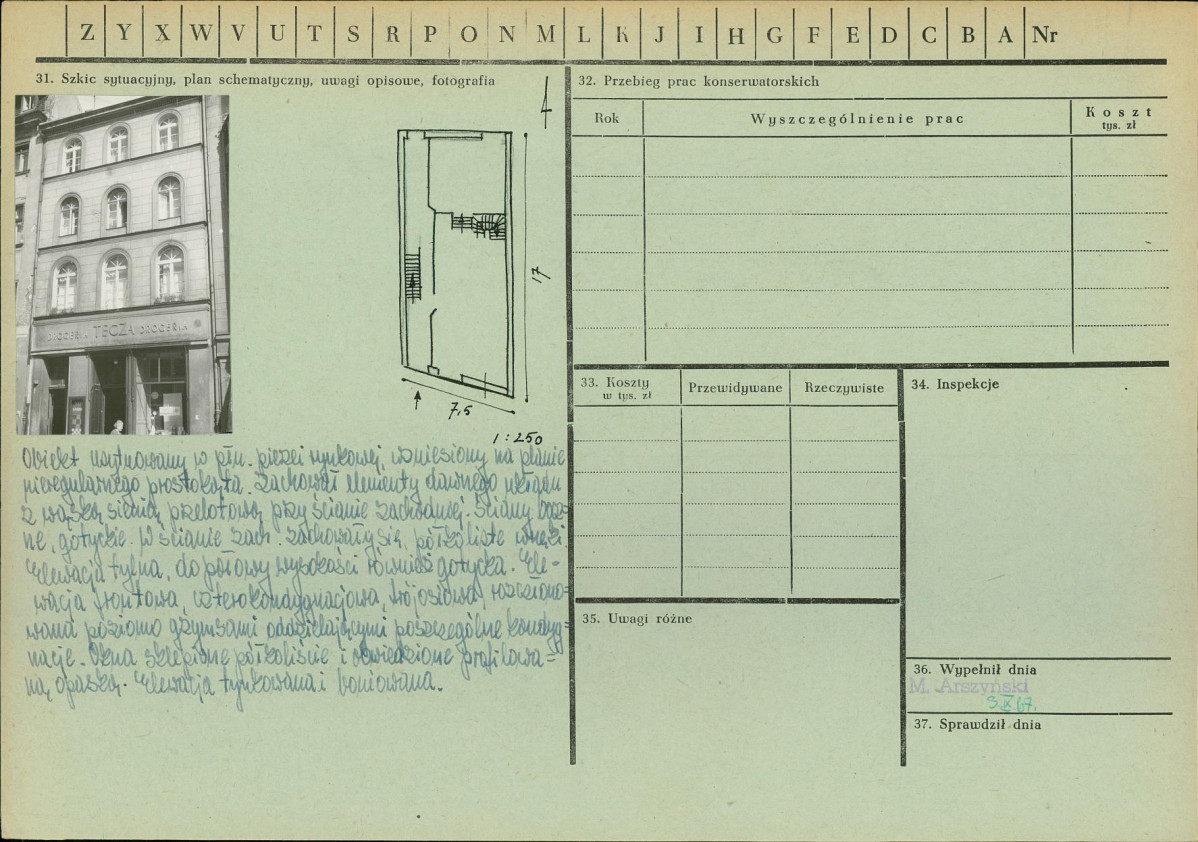 Z Y X W V U T S R P O N M L K J I H G F E D C B A Nr
31. Szkic sytuacyjny, plan schematyczny, uwagi opisowe, fotografia
DROGERIA TĘCZA DROGERIA
17
7,5
1:250
Obiekt usytuowany w płn. pierzei rynkowej, wzniesiony na planie
nieregularnego prostokąta. Zachował elementy dawnego układu
z wąską sienią przelotową przy ścianie zachodniej. Ściany bocz=
ne, gotyckie. W ścianie zach. zachowały się półkoliste wnęki
Elewacja tylna, do połowy wysokości również gotycka. Ele-
wacja frontowa, czterokondygnacjowa, trójosiowa, rozczłono=
wana poziomo gzymsami oddzielającymi poszczególne kondyg=
nacje. Okna sklepione półkoliście i obwiedzione profilowa=
ną opaską. Elewacja tynkowana i boniowana.
32. Przebieg prac konserwatorskich
Rok
Wyszczególnienie prac
Koszt
tys. zł
33. Koszty
w tys. zł
Przewidywane
Rzeczywiste
34. Inspekcje
35. Uwagi różne
36. Wypełnił dnia
M. Arszyński
X 67.
37. Sprawdził dnia